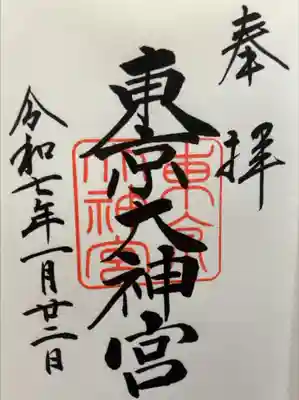 奉拝
東京大神宮
東京大神宮
令和七年一月廿二日